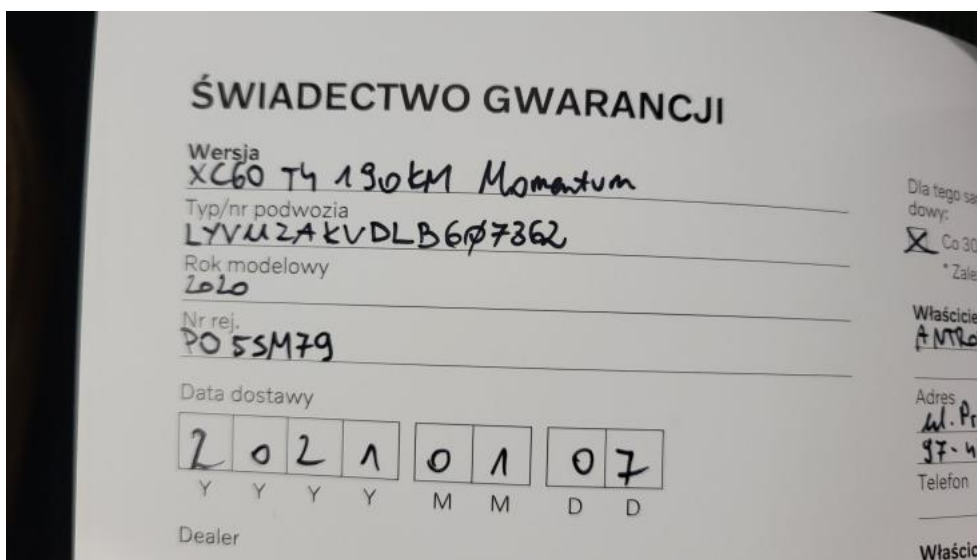 ŚWIADECTWO GWARANCJI
Wersja
XC60 T4 190KM Momentum
Typ/nr podwozia
LYVUZAKVDLB607362
Rok modelowy
2020
Nr rej.
PO 5SM79
Data dostawy
2 0 2 1 0 1 0 7
Y Y Y Y M M D D
Dealer
Dla tego
dowy:
X Co 30
Adres
ul.
Telefon